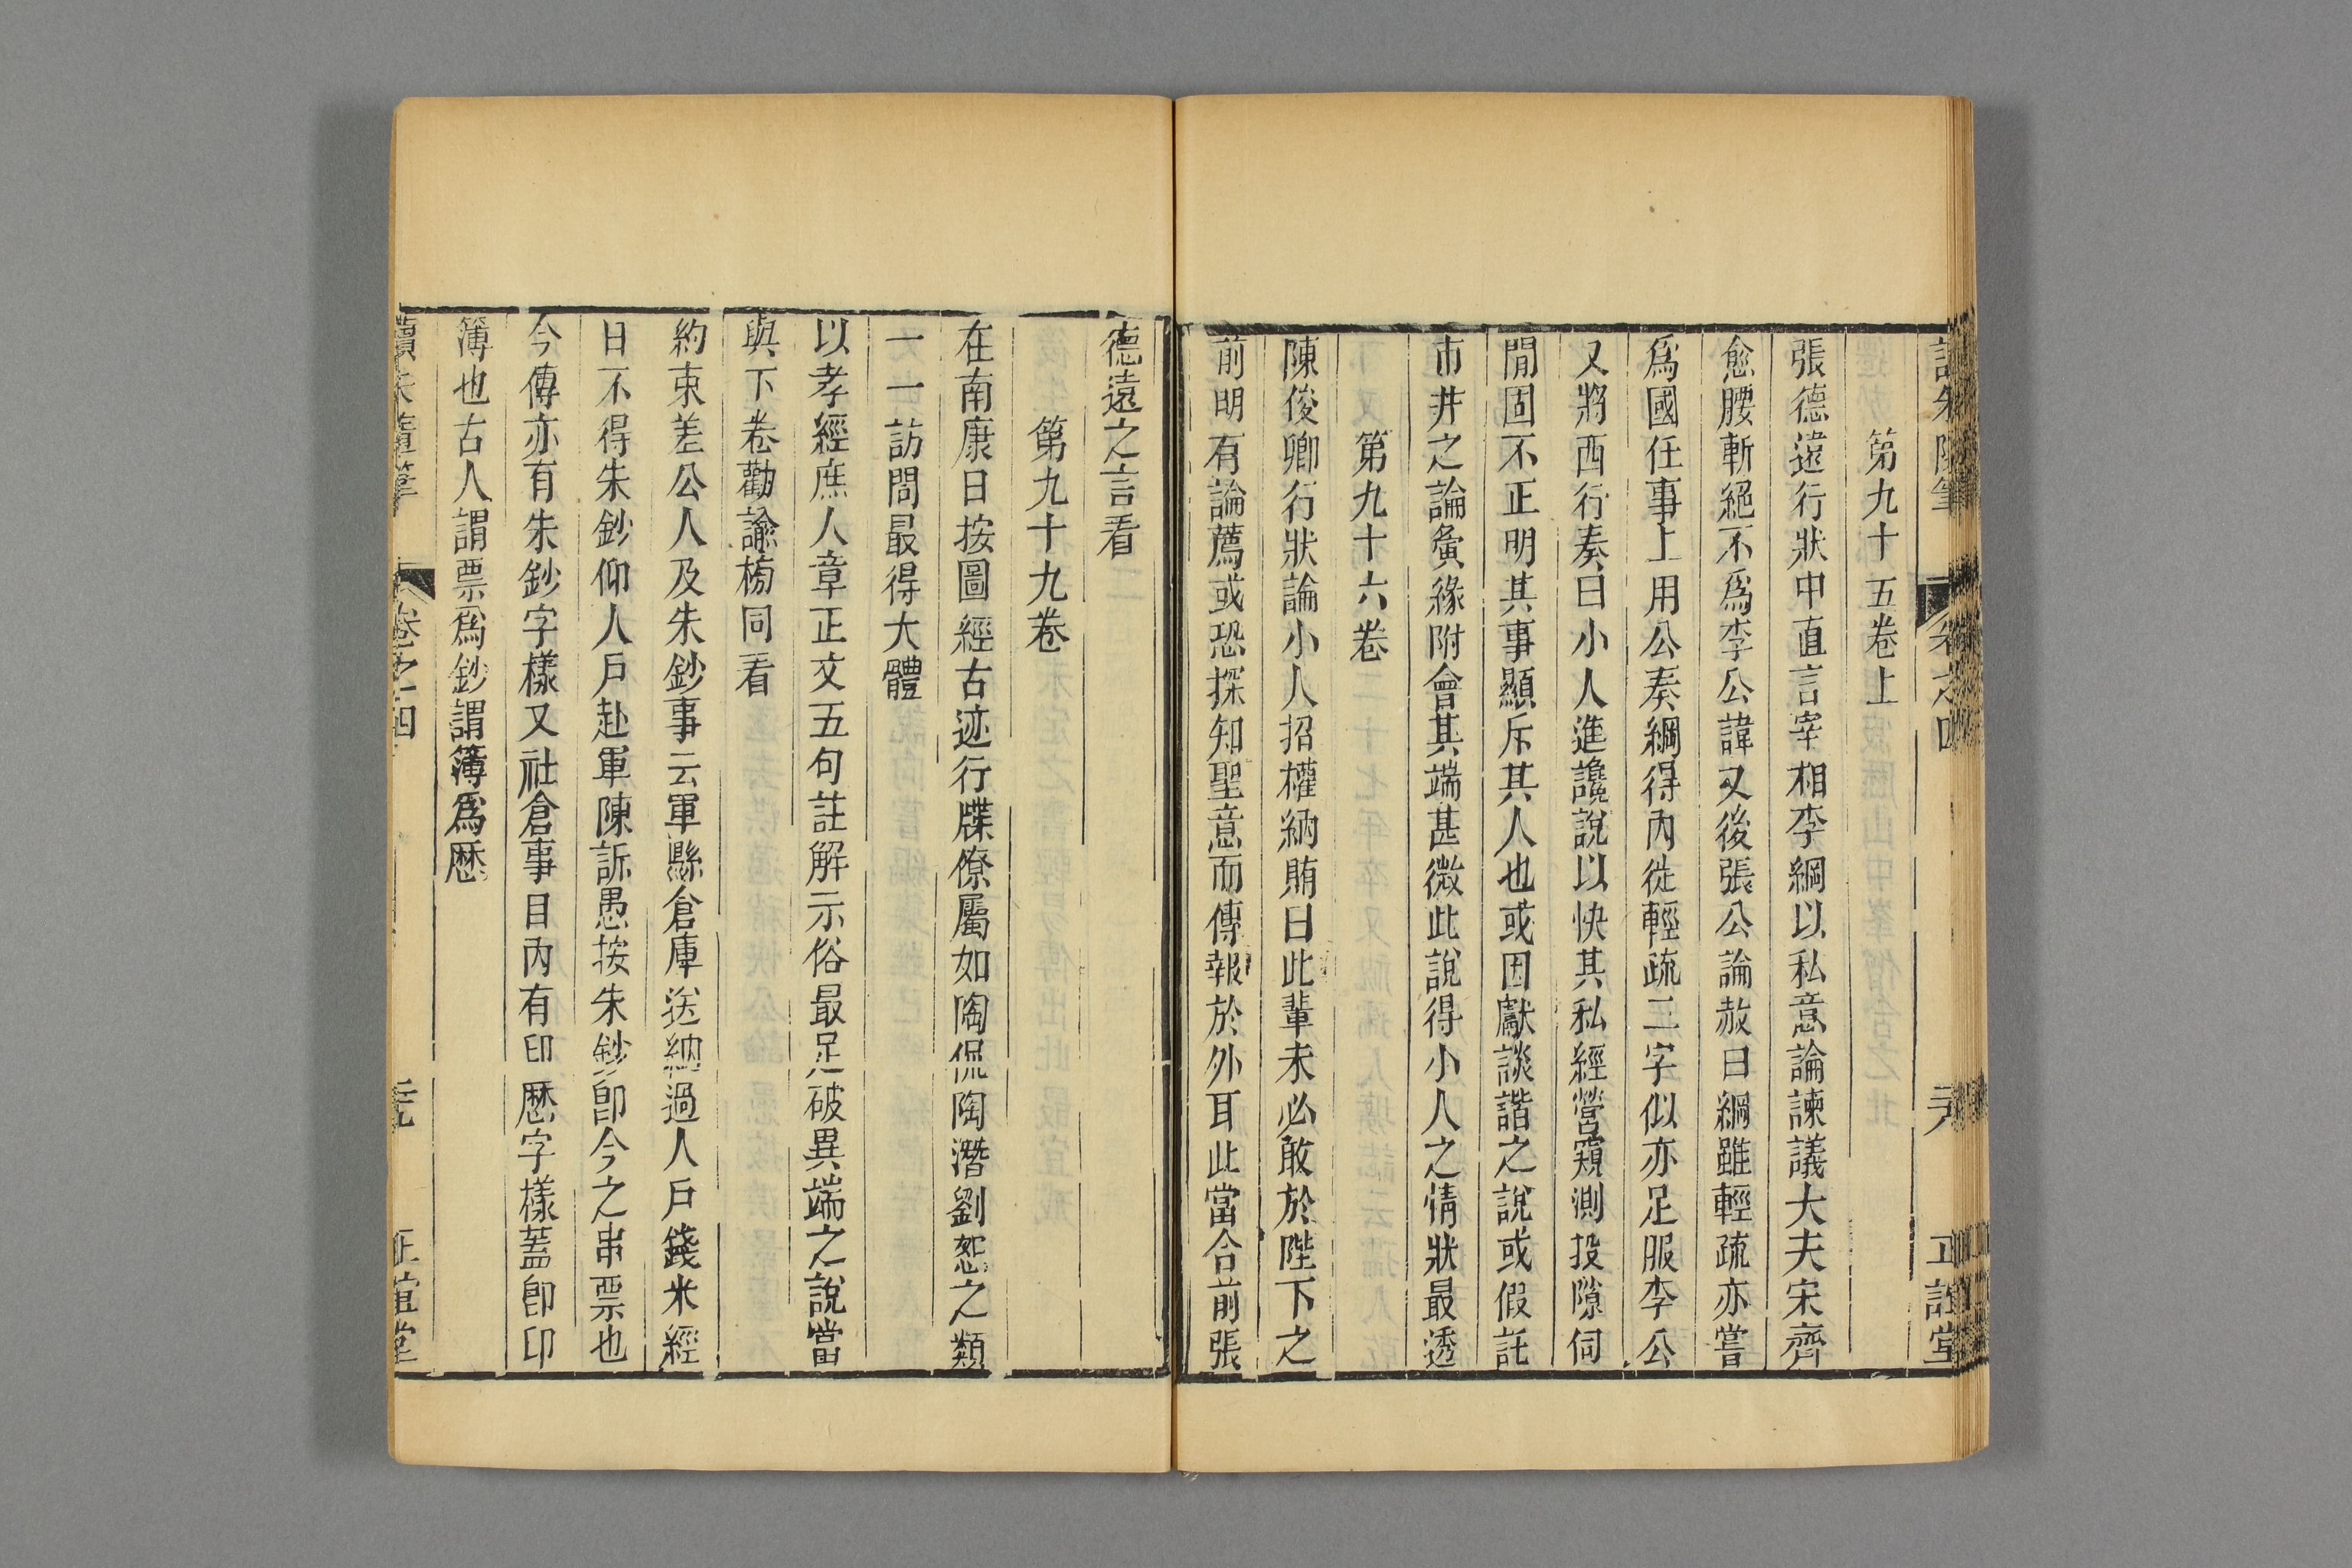 第九十五卷上
張德遠行狀中直言宰相李綱以私意論諫議大夫宋齊
愈腰斬絕不爲李公諱又後張公論赦曰綱雖輕疏亦嘗
爲國任事上用公奏綱得內徙輕疏二字似亦足服李公
又將西行奏曰小人進讒說以快其私經營窺測投隙伺
閒固不正明其事顯斥其人也或因獻談諧之說或假託
市井之論夤緣附會其端甚微此說得小人之情狀最透
第九十六卷
陳俊卿行狀論小人招權納賄曰此輩未必敢於陛下之
前明有論薦或恐探知聖意而傳報於外耳此當合前張
德遠之言看
第九十九卷
在南康日按圖經古迹行牒僚屬如陶侃陶潛劉恕之類
一一訪問最得大體
以孝經庶人章正文五句註解示俗最足破異端之說當
與下卷勸諭榜同看
約束差公人及朱鈔事云軍縣倉庫送納過人戶錢米經
日不得朱鈔仰人戶赴軍陳訴愚按朱鈔卽今之串票也
今傳亦有朱鈔字樣又社倉事目內有印歷字樣蓋卽印
簿也古人謂票爲鈔謂簿爲歷
卷之四
正誼堂